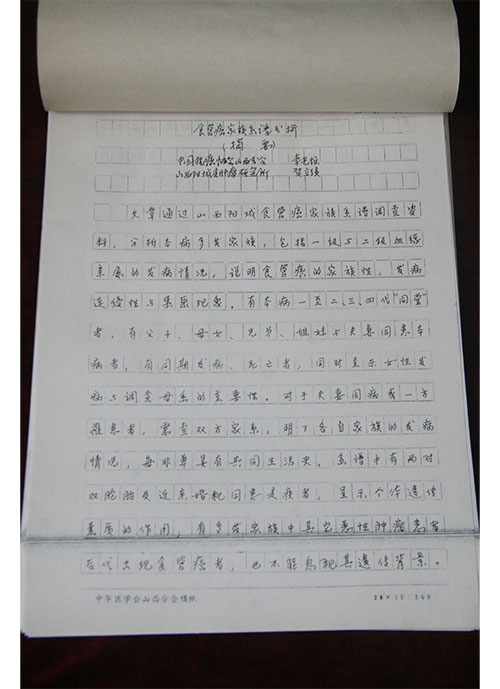 食管癌家族系谱分析
（摘要）
中国抗癌协会山西分会 李光恒
山西阳城县肿瘤研究所 贺立绩
文章通过山西阳城食管癌家族系谱调查资
料，分析本病多发家族，包括一级与二级血缘
亲属的发病情况，说明食管癌的家族性，发病
连续性与集聚现象。有本病一至二、三、四代"同堂"
者，有父子、母女、兄弟、姐妹与夫妻同患本
病者，有同期发病、死亡者，同时显示女性发
病与调查母系的重要性。对于夫妻同病或一方
罹患者，需查双方家系，明了各自家族的发病
情况，每非单具有共同生活史。系谱中有两对
双胞胎及近亲婚配同患是疾者，呈示个体遗传
素质的作用，有多发家族中其它恶性肿瘤患者
后代出现食管癌者，也不能忽视其遗传背景。
中华医学会山西分会稿纸 20×15＝300